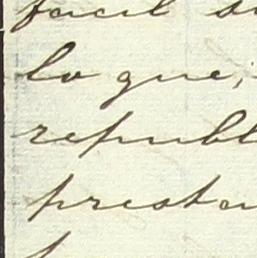 facil s
lo que,
republ
presta